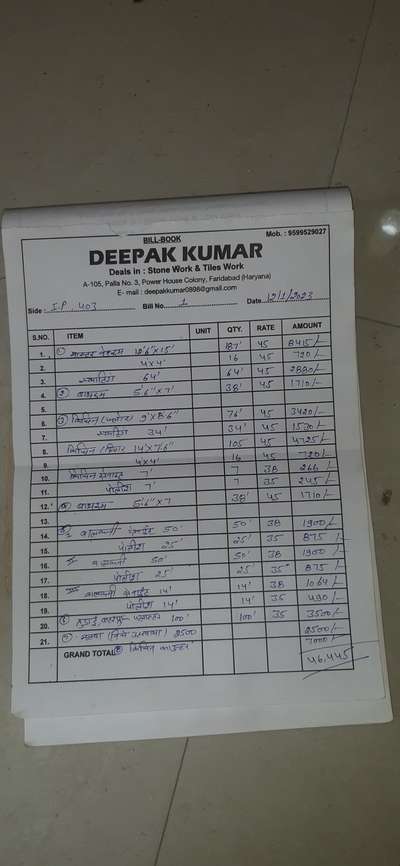 BILL-BOOK
Mob. : 9599529027
DEEPAK KUMAR
Deals in : Stone Work & Tiles Work
A-105, Palla No. 3, Power House Colony, Faridabad (Haryana)
E- mail : deepakkumar0898@gmail.com
Side : I.P. 403 Bill No. 1 Date 12/1/2023
S.NO. ITEM UNIT QTY. RATE AMOUNT
1. ① मास्टर 12'6"x15' 187' 45 8415/-
2. 4x4' 16 45 720/-
3. 64' 64' 45 2880/-
4. ② बाथरूम 5'.6"x7' 38' 45 1710/-
5.
6. ③ किचिन 9'x8'.6" 76' 45 3420/-
7. 34' 34' 45 1530/-
8. किचिन 14'x7'.6" 105 45 4725/-
9. 4x4' 16 45 720/-
10. किचिन 7' 7 38 266/-
11. पोलीश 7' 7 35 245/-
12. बाथरूम 5'.6"x7 38' 45 1710/-
13.
14. बालकनी 50' 50' 38 1900/-
15. पोलीश 25' 25' 35 875/-
16. 50' 50' 38 1900/-
17. पोलीश 25' 25' 35 875/-
18. बालकनी 14' 14' 38 1064/-
19. पोलीश 14' 14' 35 490/-
20. 100' 100' 35 3500/-
21. 2500 2500/-
GRAND TOTAL किचिन काउन्टर 7000/-
46,445